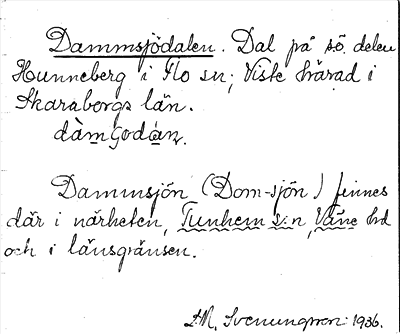 Dammsjödalen. Dal på sö. delen
Hunneberg i Flo sn; Viste härad i
Skaraborgs län.
dàmʃodán.
Dammsjön (Dom-sjön) finnes
där i närheten, Tunhem s:n, Väne hd
och i länsgränsen.
Svenungsson 1936.